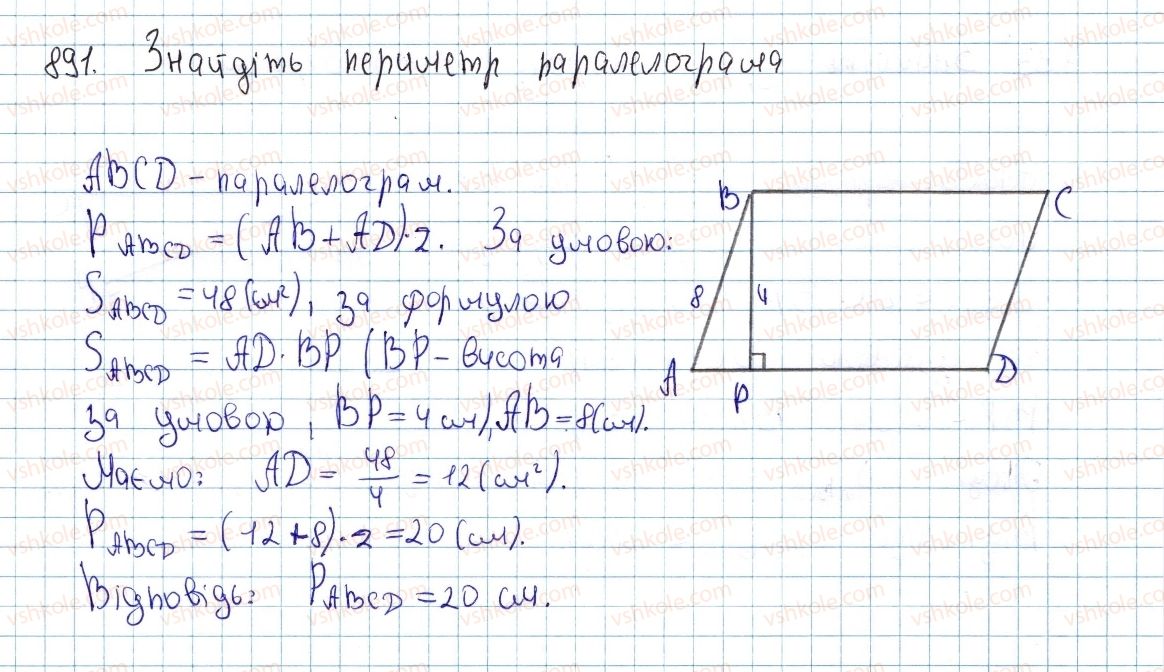 891. Знайдіть периметр паралелограма
ABCD – паралелограм.
P ABCD = (AB + AD)·2. За умовою:
S ABCD = 48 (см²), за формулою
S ABCD = AD · BP (BP – висота
за умовою, BP = 4 см), AB = 8(см).
Маємо: AD = 48/4 = 12 (см²).
P ABCD = (12 + 8)·2 = 20 (см).
Відповідь: P ABCD = 20 см.
B
C
8
4
A
P
D
vshkole.com